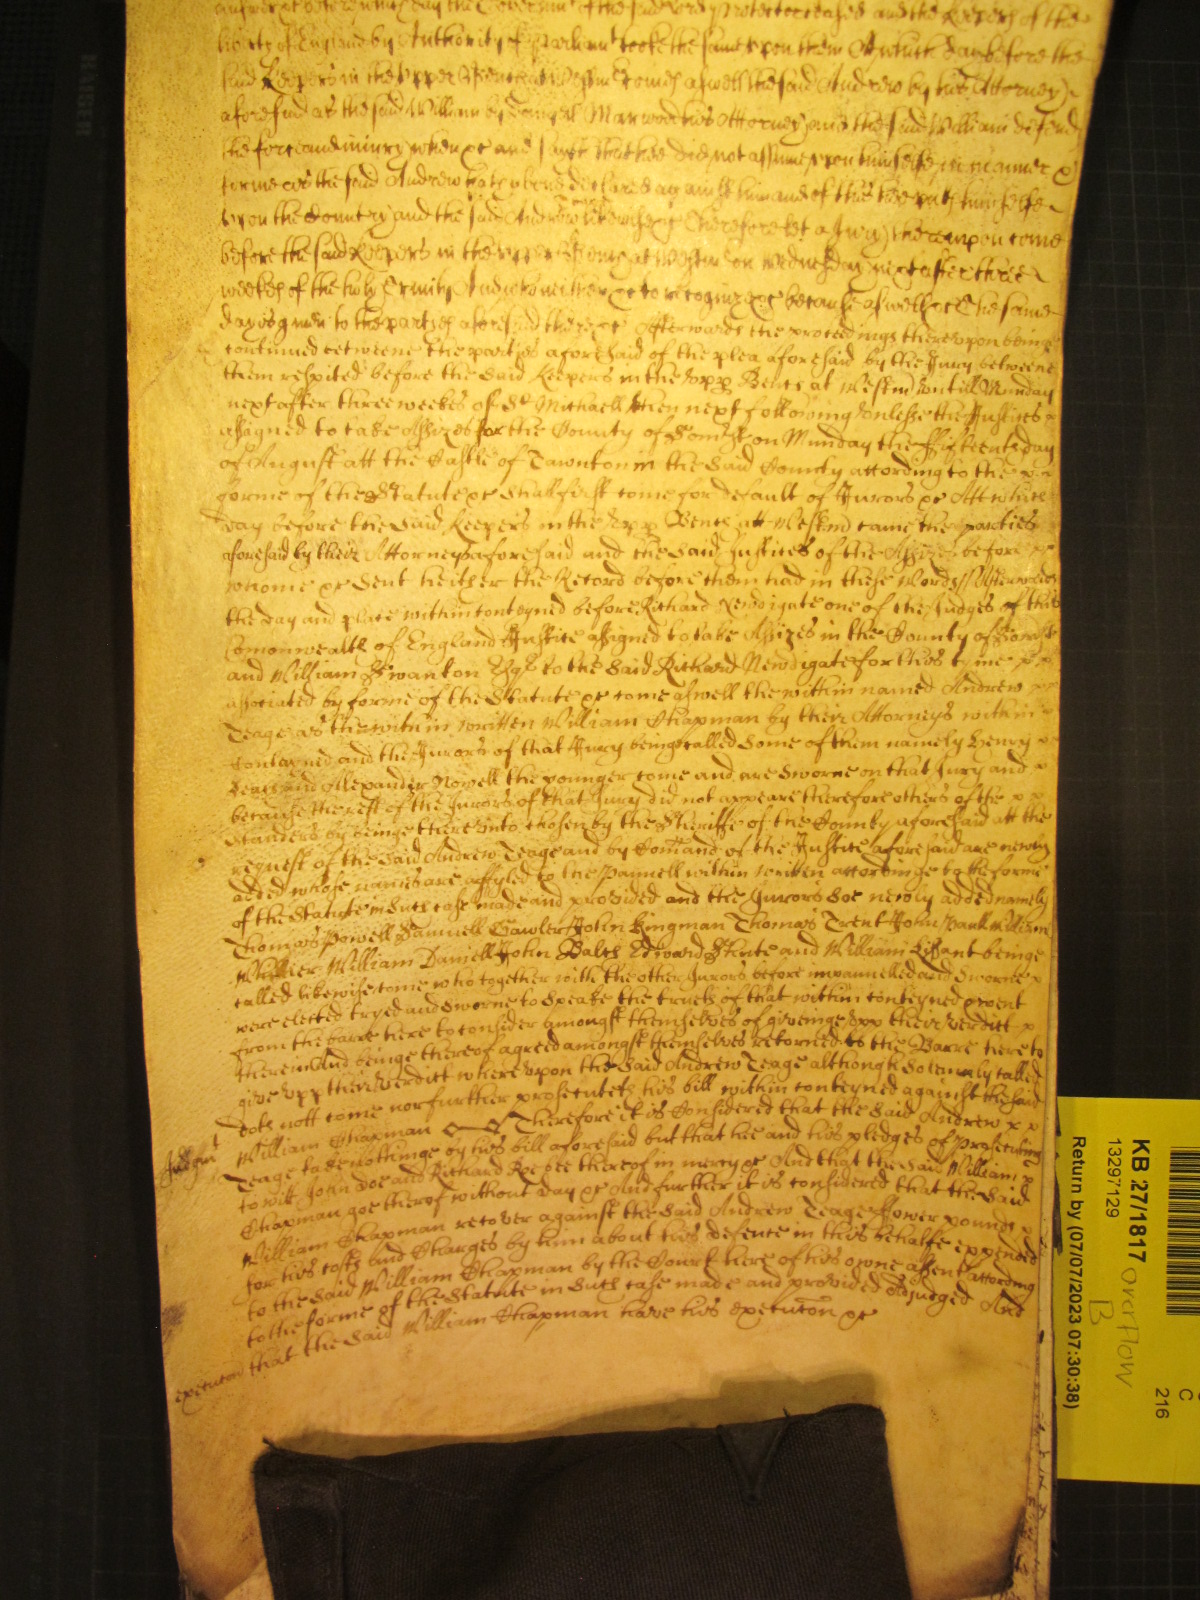 liberty of England by Authority of Parliamt tooke the same upon them At which day before the
said Keepers in the Upper Bench at Westm Comes aswell the said Andrew by his Attorney
aforesaid as the said William by Marwood his Attorney and the said William defends
the force and iniury when &c and saith that hee did not assume upon himselfe in manner &
forme as the said Andrew hath above declared against him and of this hee puts himselfe
upon the Country and the said Andrew likewise &c Therefore let a Jury thereupon come
before the said Keepers in the upper Bench at Westm on wednesday next after three
weekes of the holy Trinity And who neither &c to recognize &c because aswell &c The same
day is given to the partyes aforesaid there &c Afterwards the proceedings thereupon being
continued betweene the partyes aforesaid of the plea aforesaid by the Jury betweene
them respited before the said Keepers in the Upp Bench at Westm untill Munday
next after three weekes of St Michaell then next following unlesse the Justices
assigned to take Assizes for the County of Somst on Munday the fifteenth day
of August att the Castle of Taunton in the said County according to the
forme of the Statute &c shall first come for default of Jurors &c Att which
day before the said Keepers in the Upp Bench att Westm came the parties
aforesaid by their Attorneys aforesaid and the said Justices of the Assizes before
whome &c sent hether the Record before them had in these words Afterwards
the day and place within conteyned before Richard Newdigate one of the Judges of this
Comonwealth of England Justice assigned to take Assizes in the County of Somst
and William Swanton Esqr to the said Richard Newdigate for this tyme
associated by forme of the Statute &c come aswell the within named Andrew
Teage as the within written William Chapman by their Attorneys within
conteyned and the Jurors of that Jury being called some of them namely Henry
and Alexander Nowell the younger come and are sworne on that Jury and
because the rest of the Jurors of that Jury did not appeare therefore others of the
standers by beinge thereunto chosen by the Sheriffe of the County aforesaid att the
request of the said Andrew Teage and by Comand of the Justice aforesaid are newly
added whose names are affyled to the Pannell within written accordinge to the forme
of the Statute in such case made and provided and the Jurors soe newly added namely
Thomas Powell Samuell Gawler John Kingman Thomas Trent John William
William Daniell John Balch Edward and William beinge
called likewise come who together with the other Jurors before impannelled and sworne
were elected tryed and sworne to speake the trueth of that within conteyned went
from the barre here to consider amongst themselves of giveinge upp their verditt
therein And beinge thereof agreed amongst themselves retorned to the Barre here to
give upp their Verditt whereupon the said Andrew Teage although solemnly called
doth nott come nor further prosecuteth his bill within conteyned against the said
William Chapman Therefore it is Considered that the said Andrew
Judgmt
Teage take nothinge by his bill aforesaid but that hee and his pledges of prosecuting
to witt John Doe and Richard Roe bee thereof in mercy &c And that the said William
Chapman goe therof without day &c And further it is considered that the said
William Chapman recover against the said Andrew Teage ffower pounds
for his costs and Charges by him about his defence in this behalfe expended
to the said William Chapman by the Court here of his owne assent according
to the forme of the Statute in such case made and provided adjudged And
execution that the said William Chapman have his execution &c
KB 27/1817
13297129
Return by (07/07/2023 07:30:38)
overflow
B
C
216